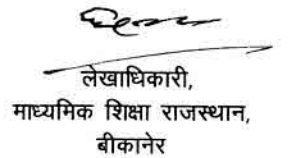 लेखाधिकारी,
माध्यमिक शिक्षा राजस्थान,
बीकानेर